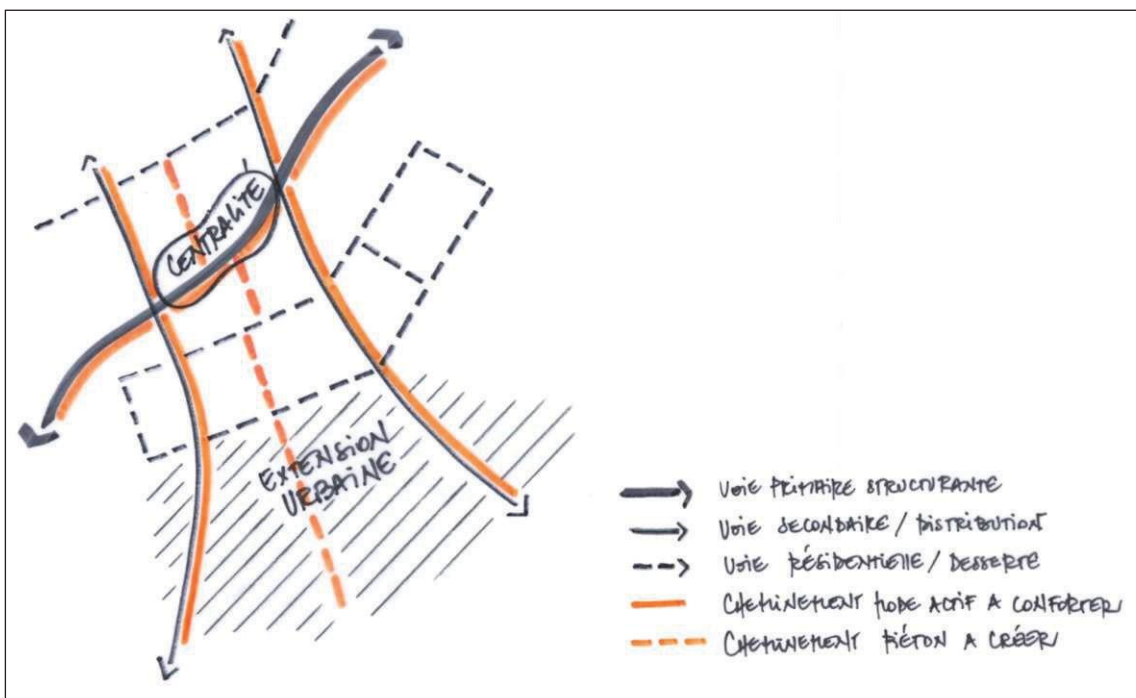 CENTRALITÉ
EXTENSION
URBAINE
VOIE PRIMAIRE STRUCTURANTE
VOIE SECONDAIRE / DISTRIBUTION
VOIE RÉSIDENTIELLE / DESSERTE
CHEMINEMENT MODE ACTIF A CONFORTER
CHEMINEMENT PIÉTON A CRÉER